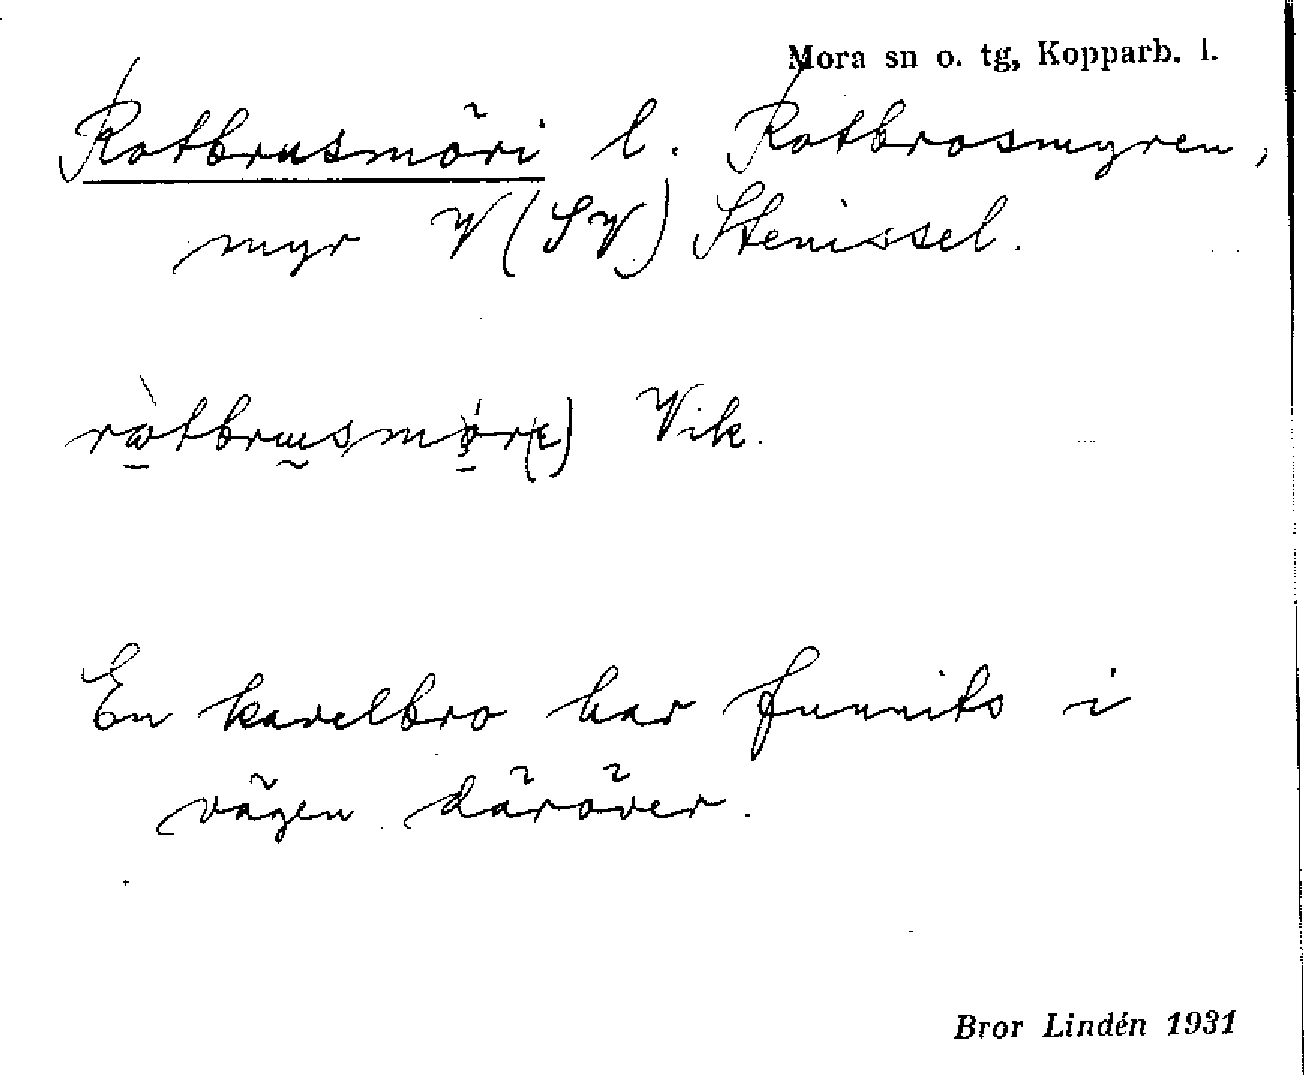 Mora sn o. tg, Kopparb. l.
Rotbrusmöri l. Rotbrosmyren,
myr V (SV) Stenissel.
Vik.
En kavelbro har funnits i
vägen däröver.
Bror Lindén 1931